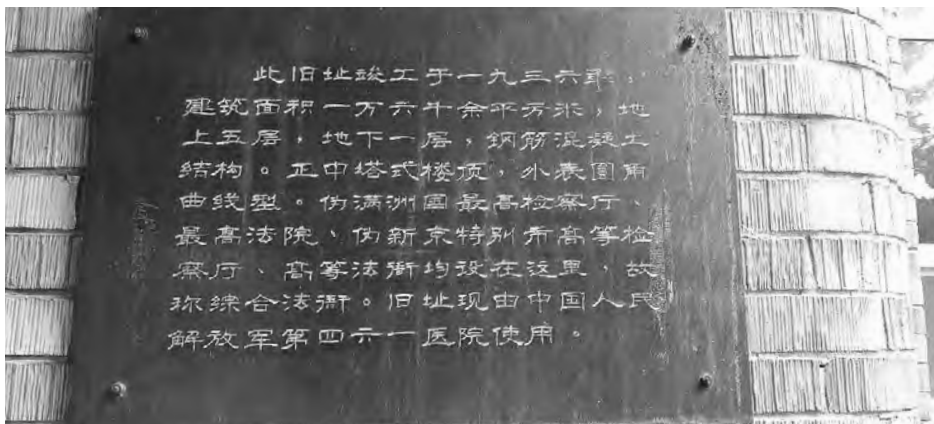 此旧址竣工于一九三六年，
建筑面积一万六千余平方米，地
上五层，地下一层，钢筋混凝土
结构。正中塔式楼顶，外表圆角
曲线型。伪满洲国最高检察厅、
最高法院、伪新京特别市高等检
察厅、高等法衙均设在这里，故
称综合法衙。旧址现由中国人民
解放军第四六一医院使用。